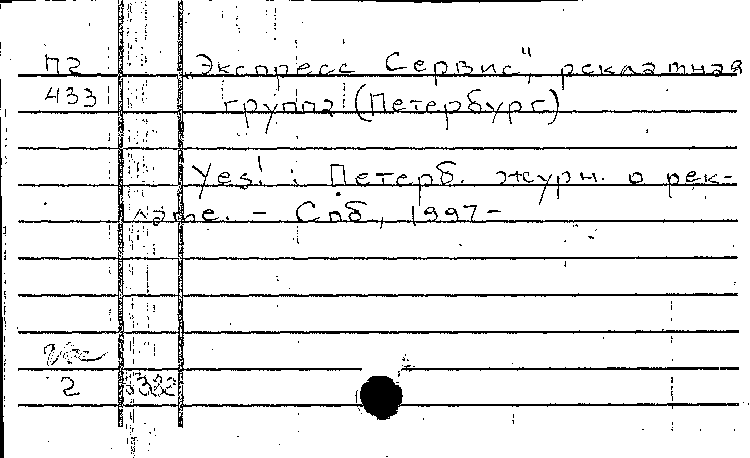 П2 „Экспресс Сервис", рекламная
433 группа (Петербург)
Yes! : Петерб. журн. о рек-
ламе. – Спб, 1997–
2 382